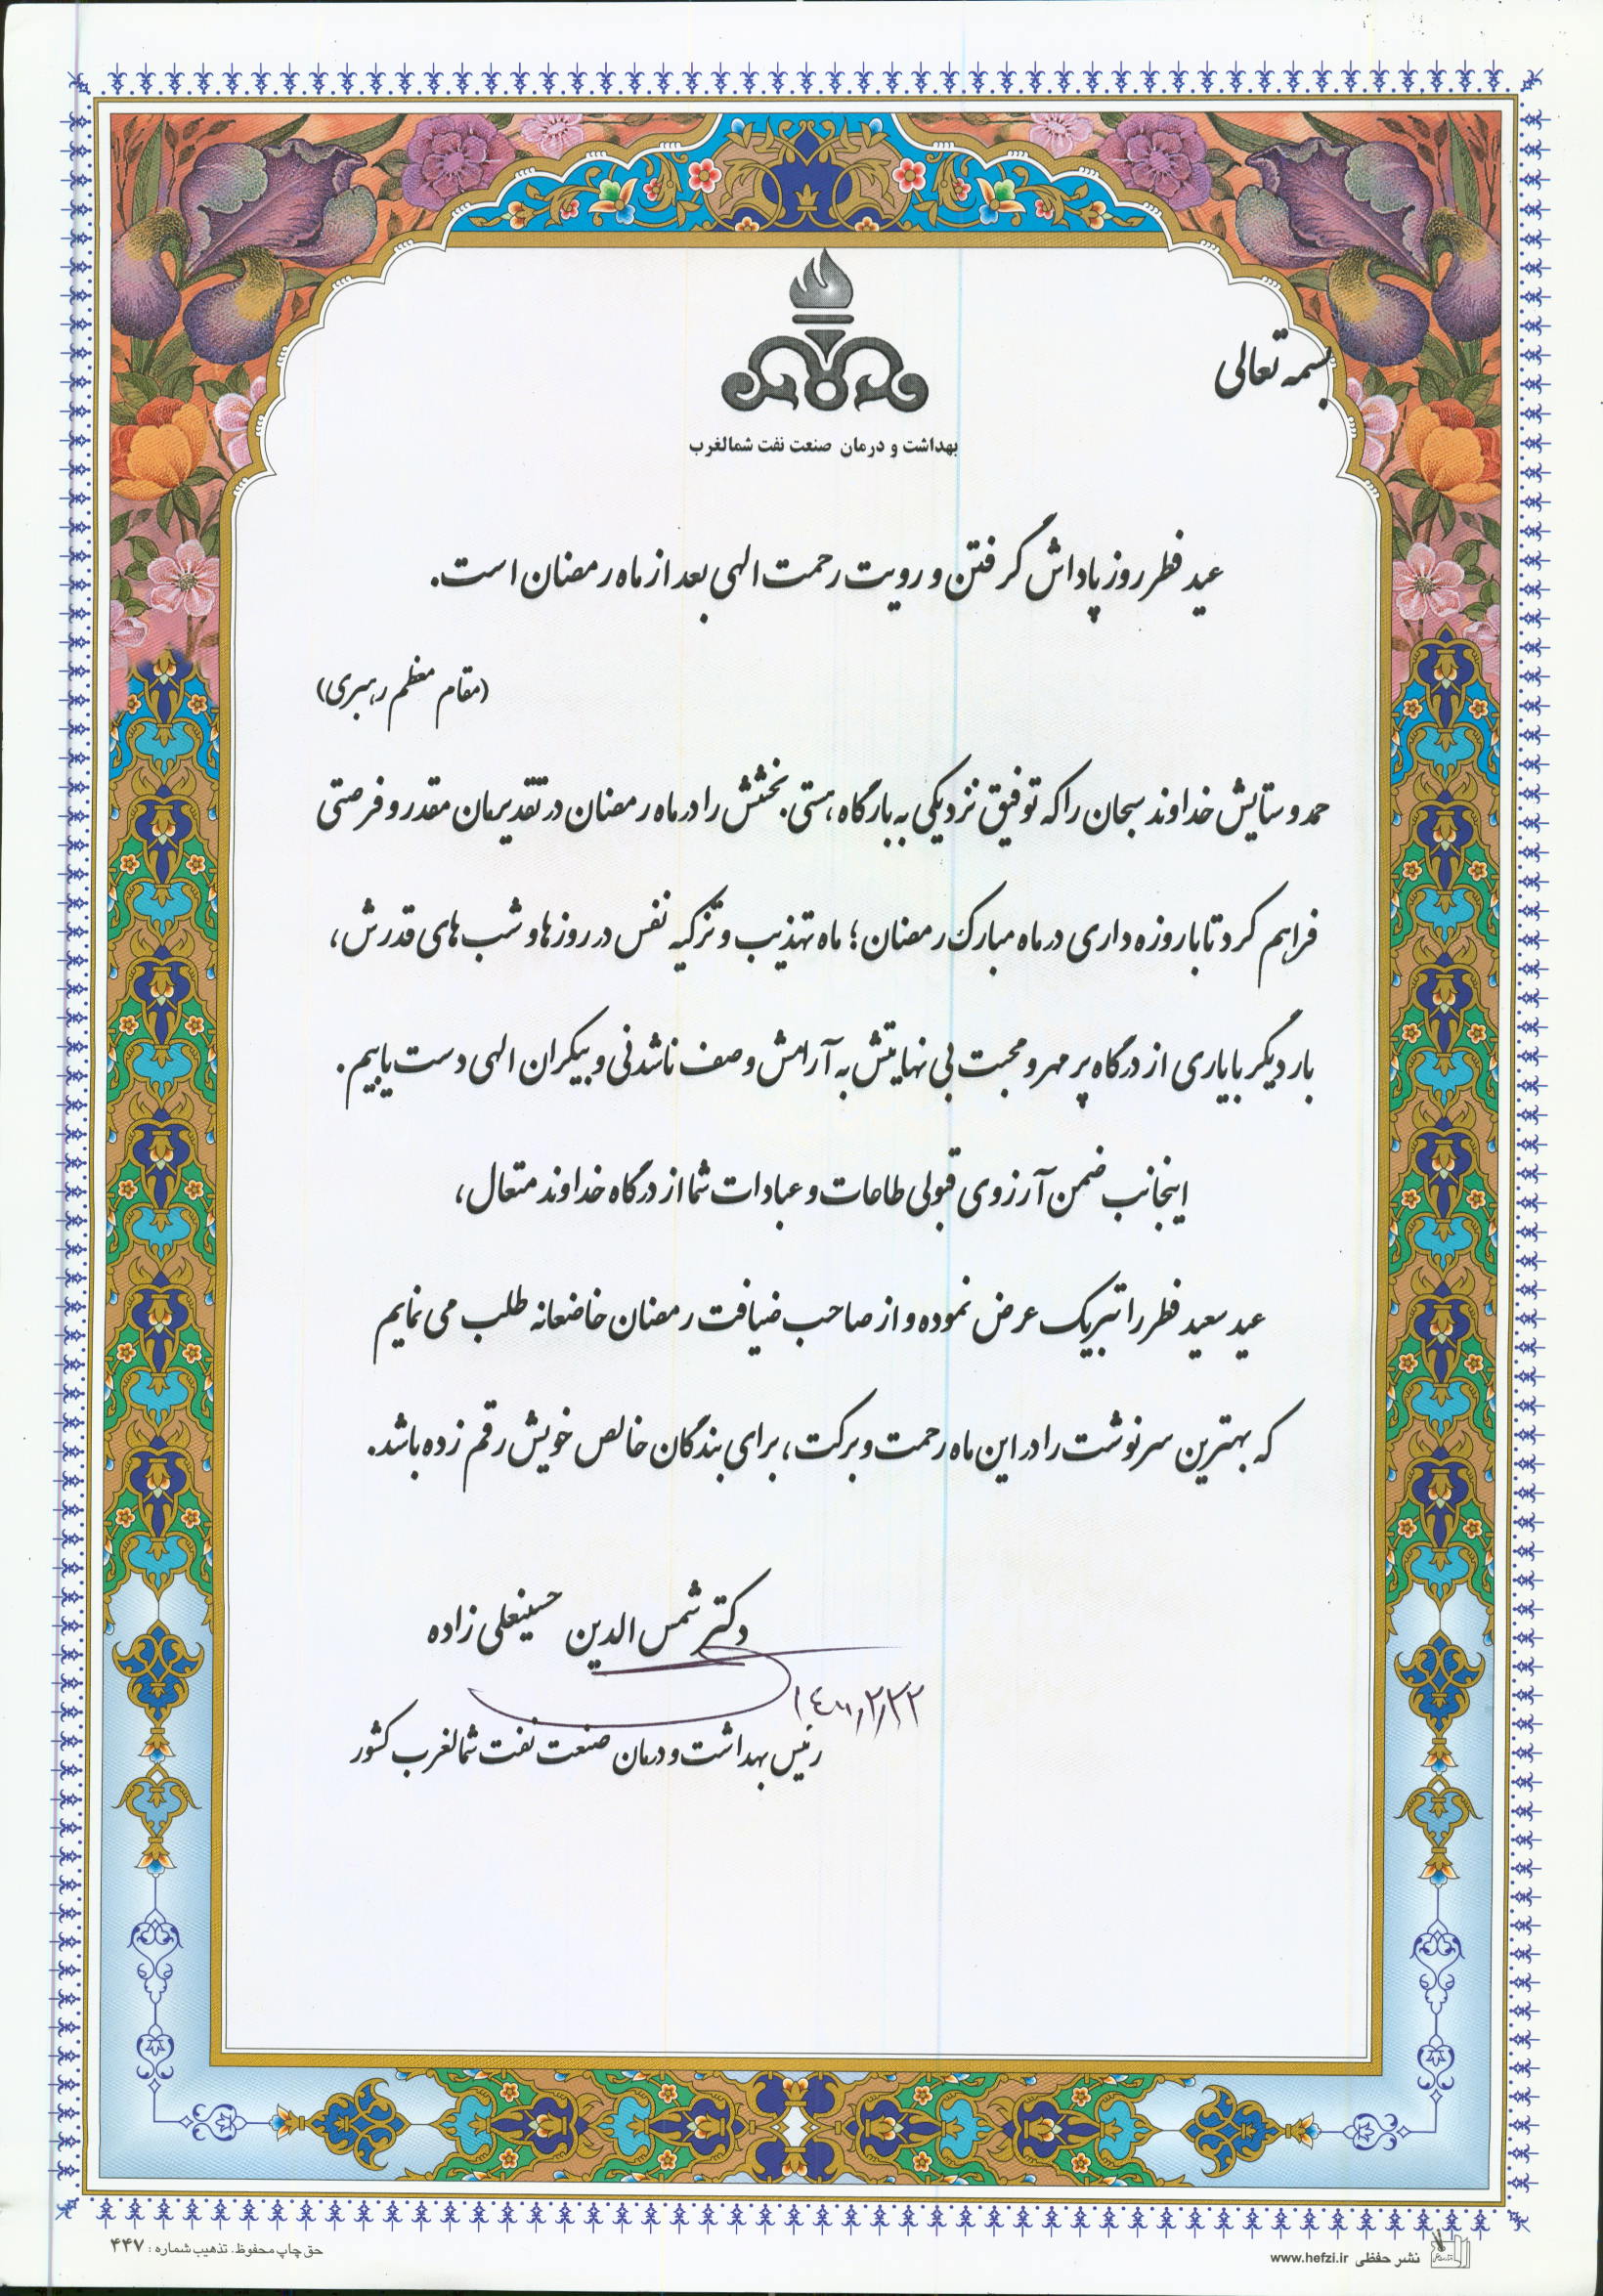 بسمه تعالی
بهداشت و درمان صنعت نفت شمالغرب
عید فطر روز پاداش گرفتن و رویت رحمت الهی بعد از ماه رمضان است.
(مقام معظم رهبری)
حمد و ستایش خداوند سبحان را که توفیق نزدیکی به بارگاه هستی بخشش را در ماه رمضان در تقدیرمان مقدر و فرصتی
فراهم کرد تا با روزه داری در ماه مبارک رمضان؛ ماه تهذیب و تزکیه نفس در روزها و شب های قدرش،
بار دیگر با یاری از درگاه پر مهر و محبت بی نهایتش به آرامش وصف ناشدنی و بیکران الهی دست یابیم.
اینجانب ضمن آرزوی قبولی طاعات و عبادات شما از درگاه خداوند متعال،
عید سعید فطر را تبریک عرض نموده و از صاحب ضیافت رمضان خاضعانه طلب می نمایم
که بهترین سرنوشت را در این ماه رحمت و برکت، برای بندگان خالص خویش رقم زده باشد.
دکتر شمس الدین حسینعلی زاده
۱۴۰۰/۲/۲۲
رئیس بهداشت و درمان صنعت نفت شمالغرب کشور
حق چاپ محفوظ. تذهیب شماره: ۴۴۷
نشر حفظی www.hefzi.ir